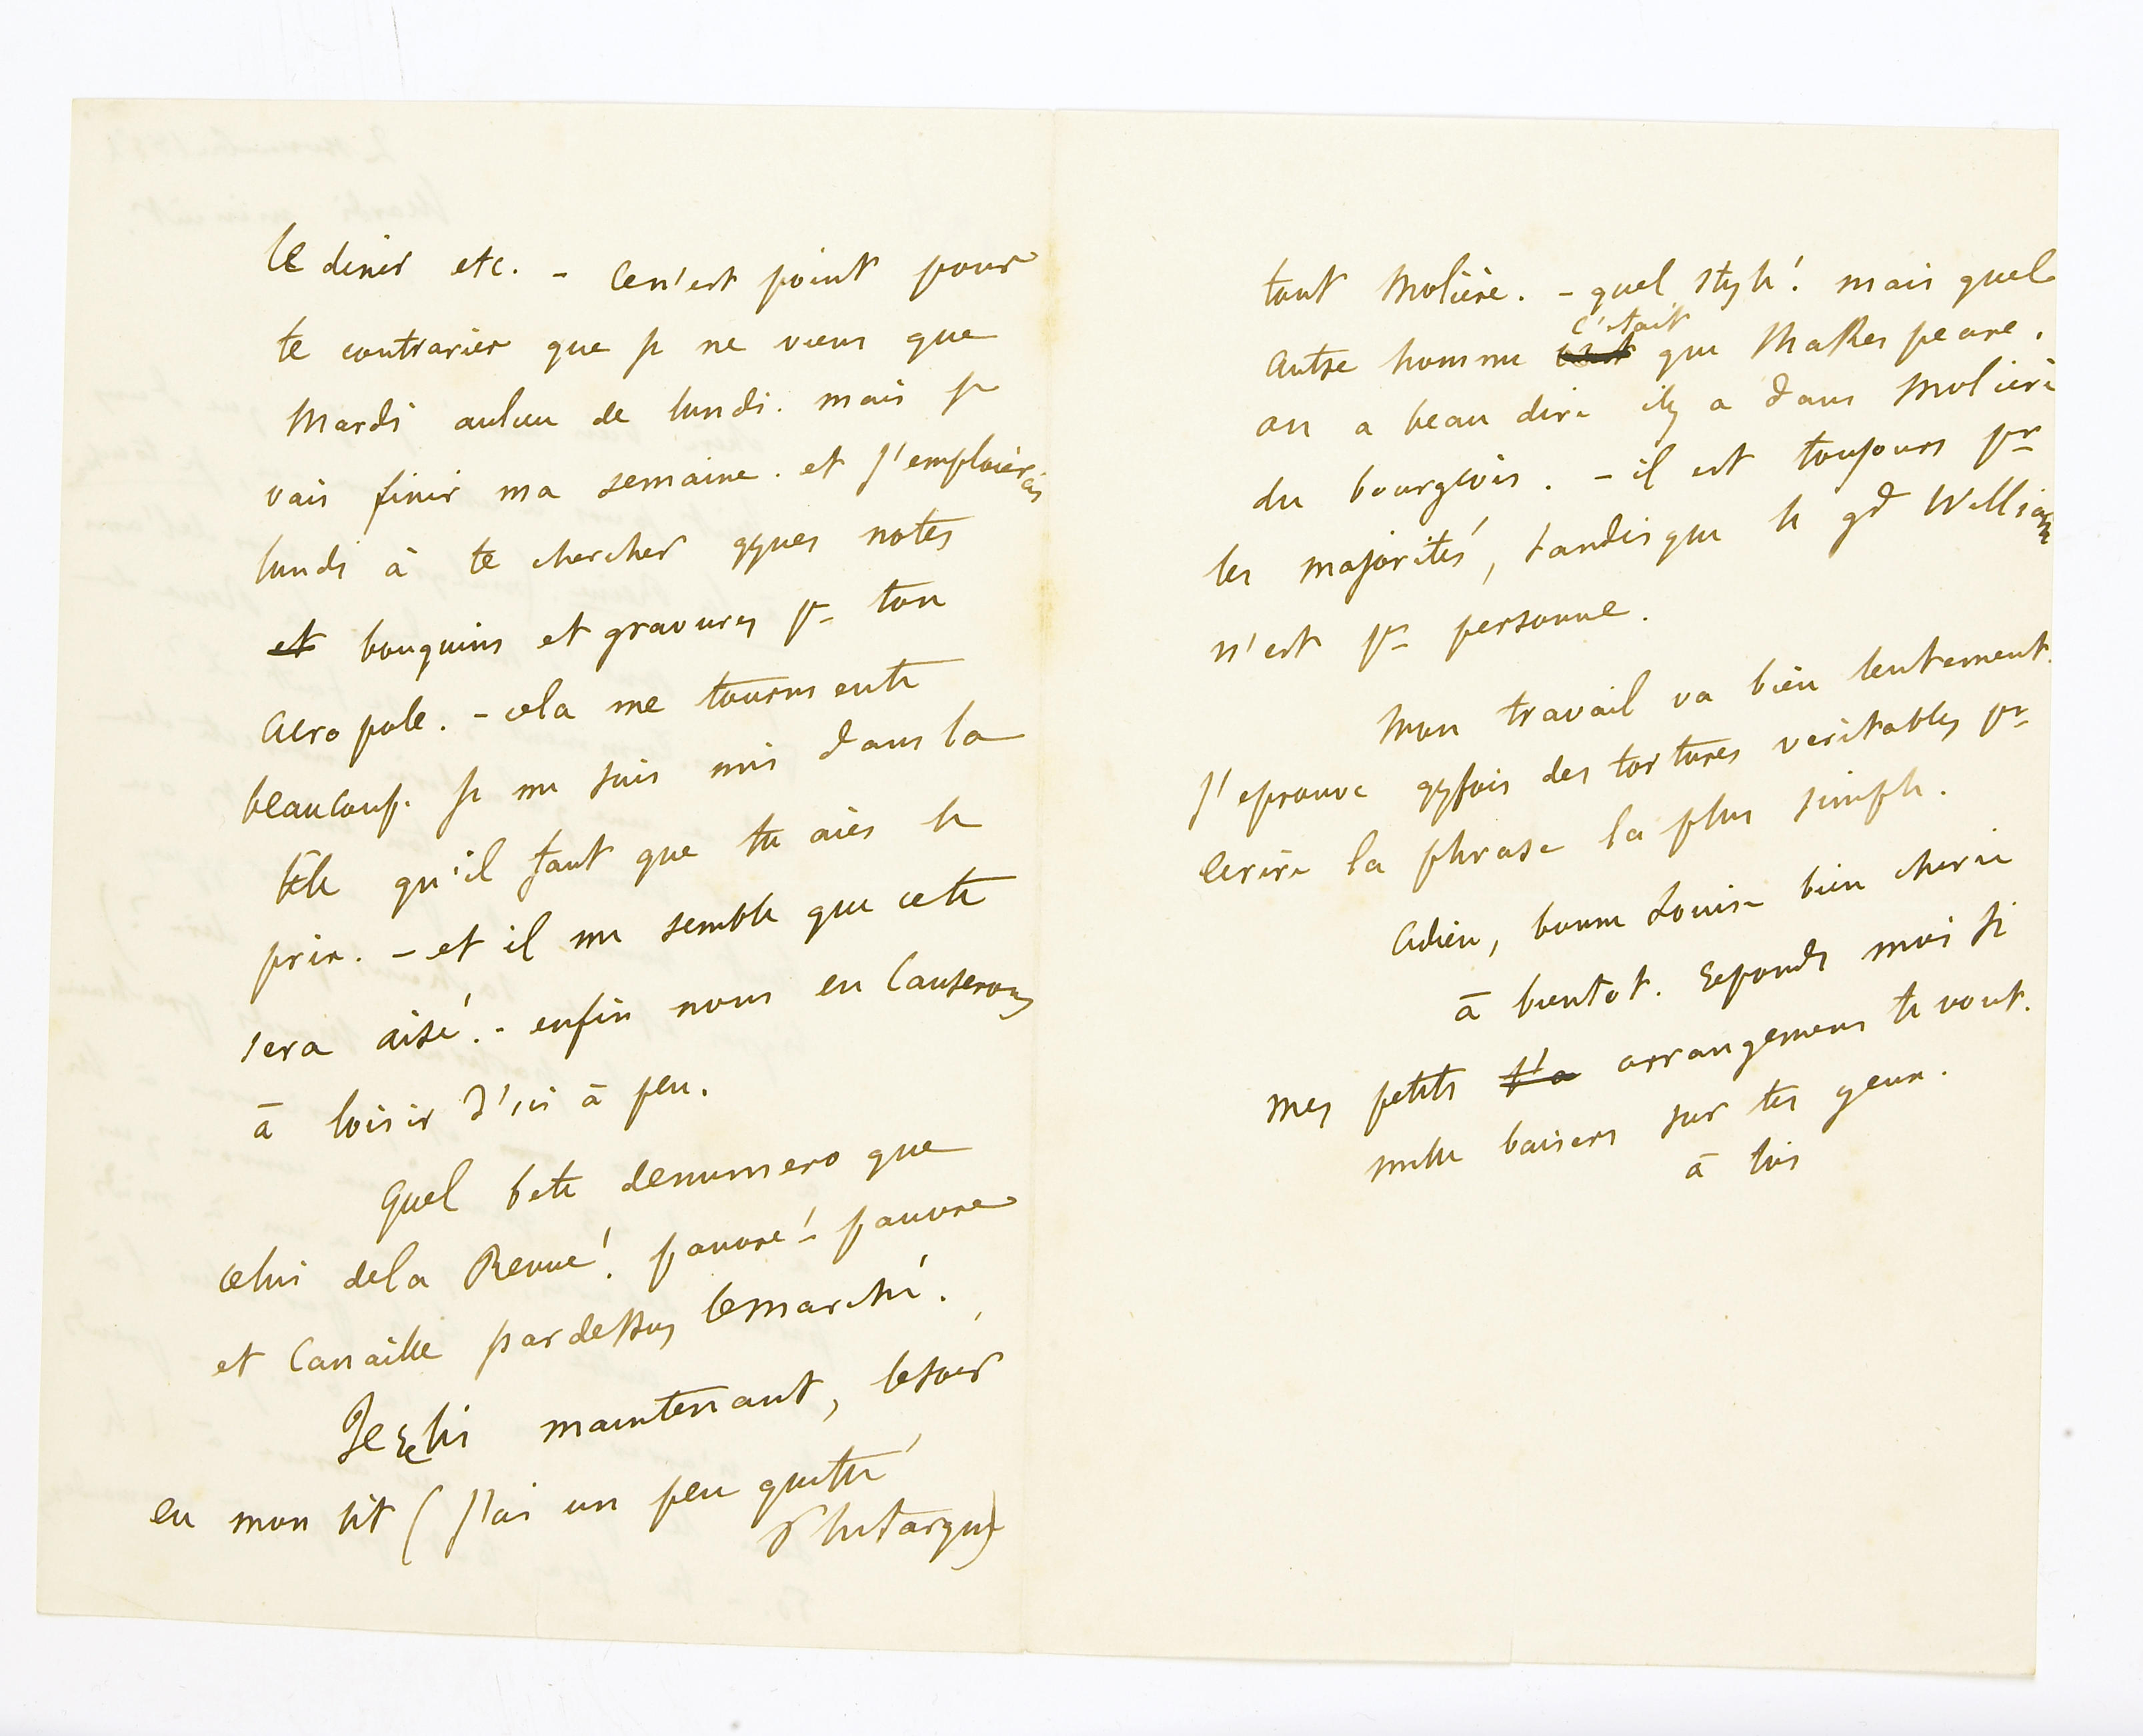 le diner etc. - Ce n'est point pour
te contrarier que je ne viens que
Mardi aulieu de lundi. mais je
vais finir ma semaine. et j'emploierais
lundi à te chercher qques notes
et bouquins et gravures pr ton
acropole. - cela me tourmente
beaucoup. je me suis mis dans la
tête qu'il faut que tu aies le
prix. - et il me semble que cette
sera aisé. - enfin nous en causerons
à loisir d'ici à peu.
Quel bete de numero que
celui de la Revue! pauvre! - pauvre
et canaille pardessus le marché.
Je relis maintenant, le soir
en mon lit (j'ai un peu quitté
Plutarque)
tout Moliere. - quel style! mais quel
c'etait
autre homme que Shakespeare.
on a beau dire il y a dans Moliere
du bourgeois. - il est toujours pr
les majorités, tandisque le gd William
n'est pr personne.
Mon travail va bien lentement.
J'eprouve qqfois des tortures veritables pr
ecrire la phrase la plus simple.
Adieu, bonne Louise bien cherie
à bientot. Reponds moi si
mes petits arrangemens te vont.
mille baisers sur tes yeux.
à toi